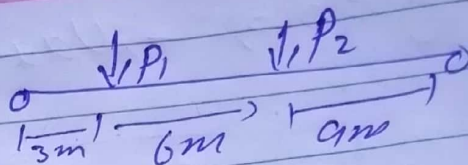 P1 P2
3m 6m 9m